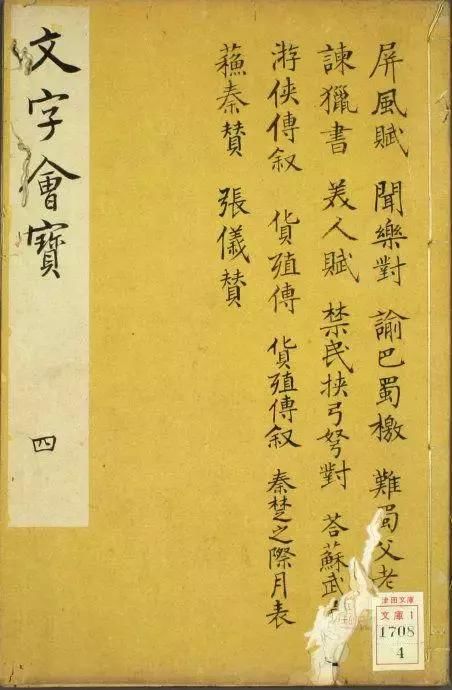 文字會寶 四
屏風賦 聞樂對 諭巴蜀檄 難蜀父老
諫獵書 美人賦 禁民挾弓弩對 荅蘇武
游俠傳叙 貨殖傳 貨殖傳叙 秦楚之際月表
蘓秦賛 張儀賛
津田文庫
文庫1
1708
4